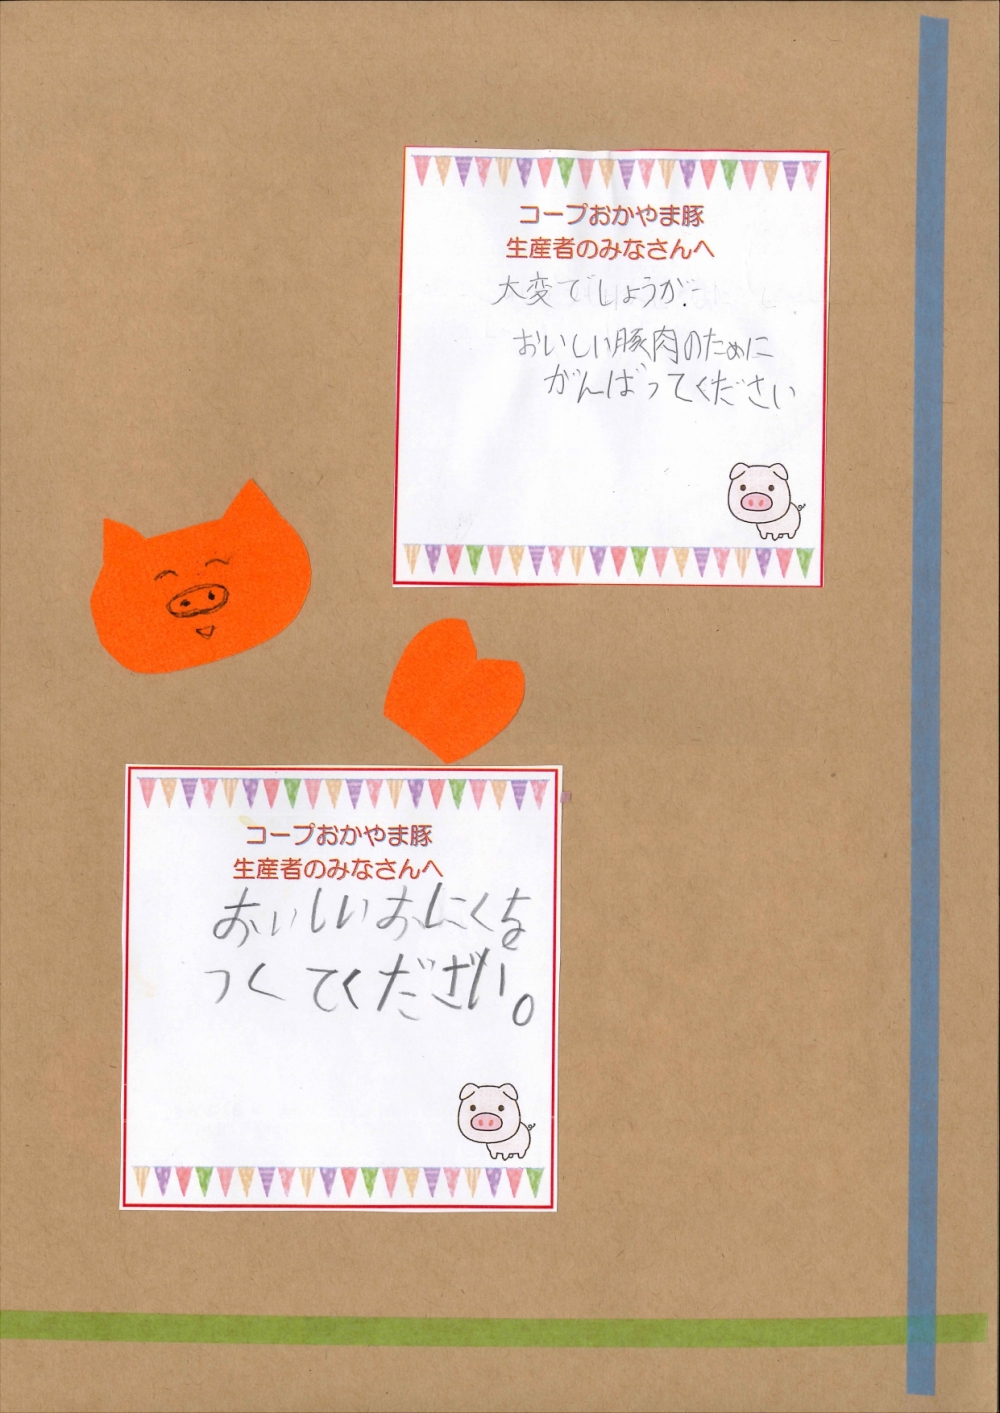 コープおかやま豚
生産者のみなさんへ
大変でしょうが、
おいしい豚肉のために
がんばってください
コープおかやま豚
生産者のみなさんへ
おいしいおにくを
つくてください。